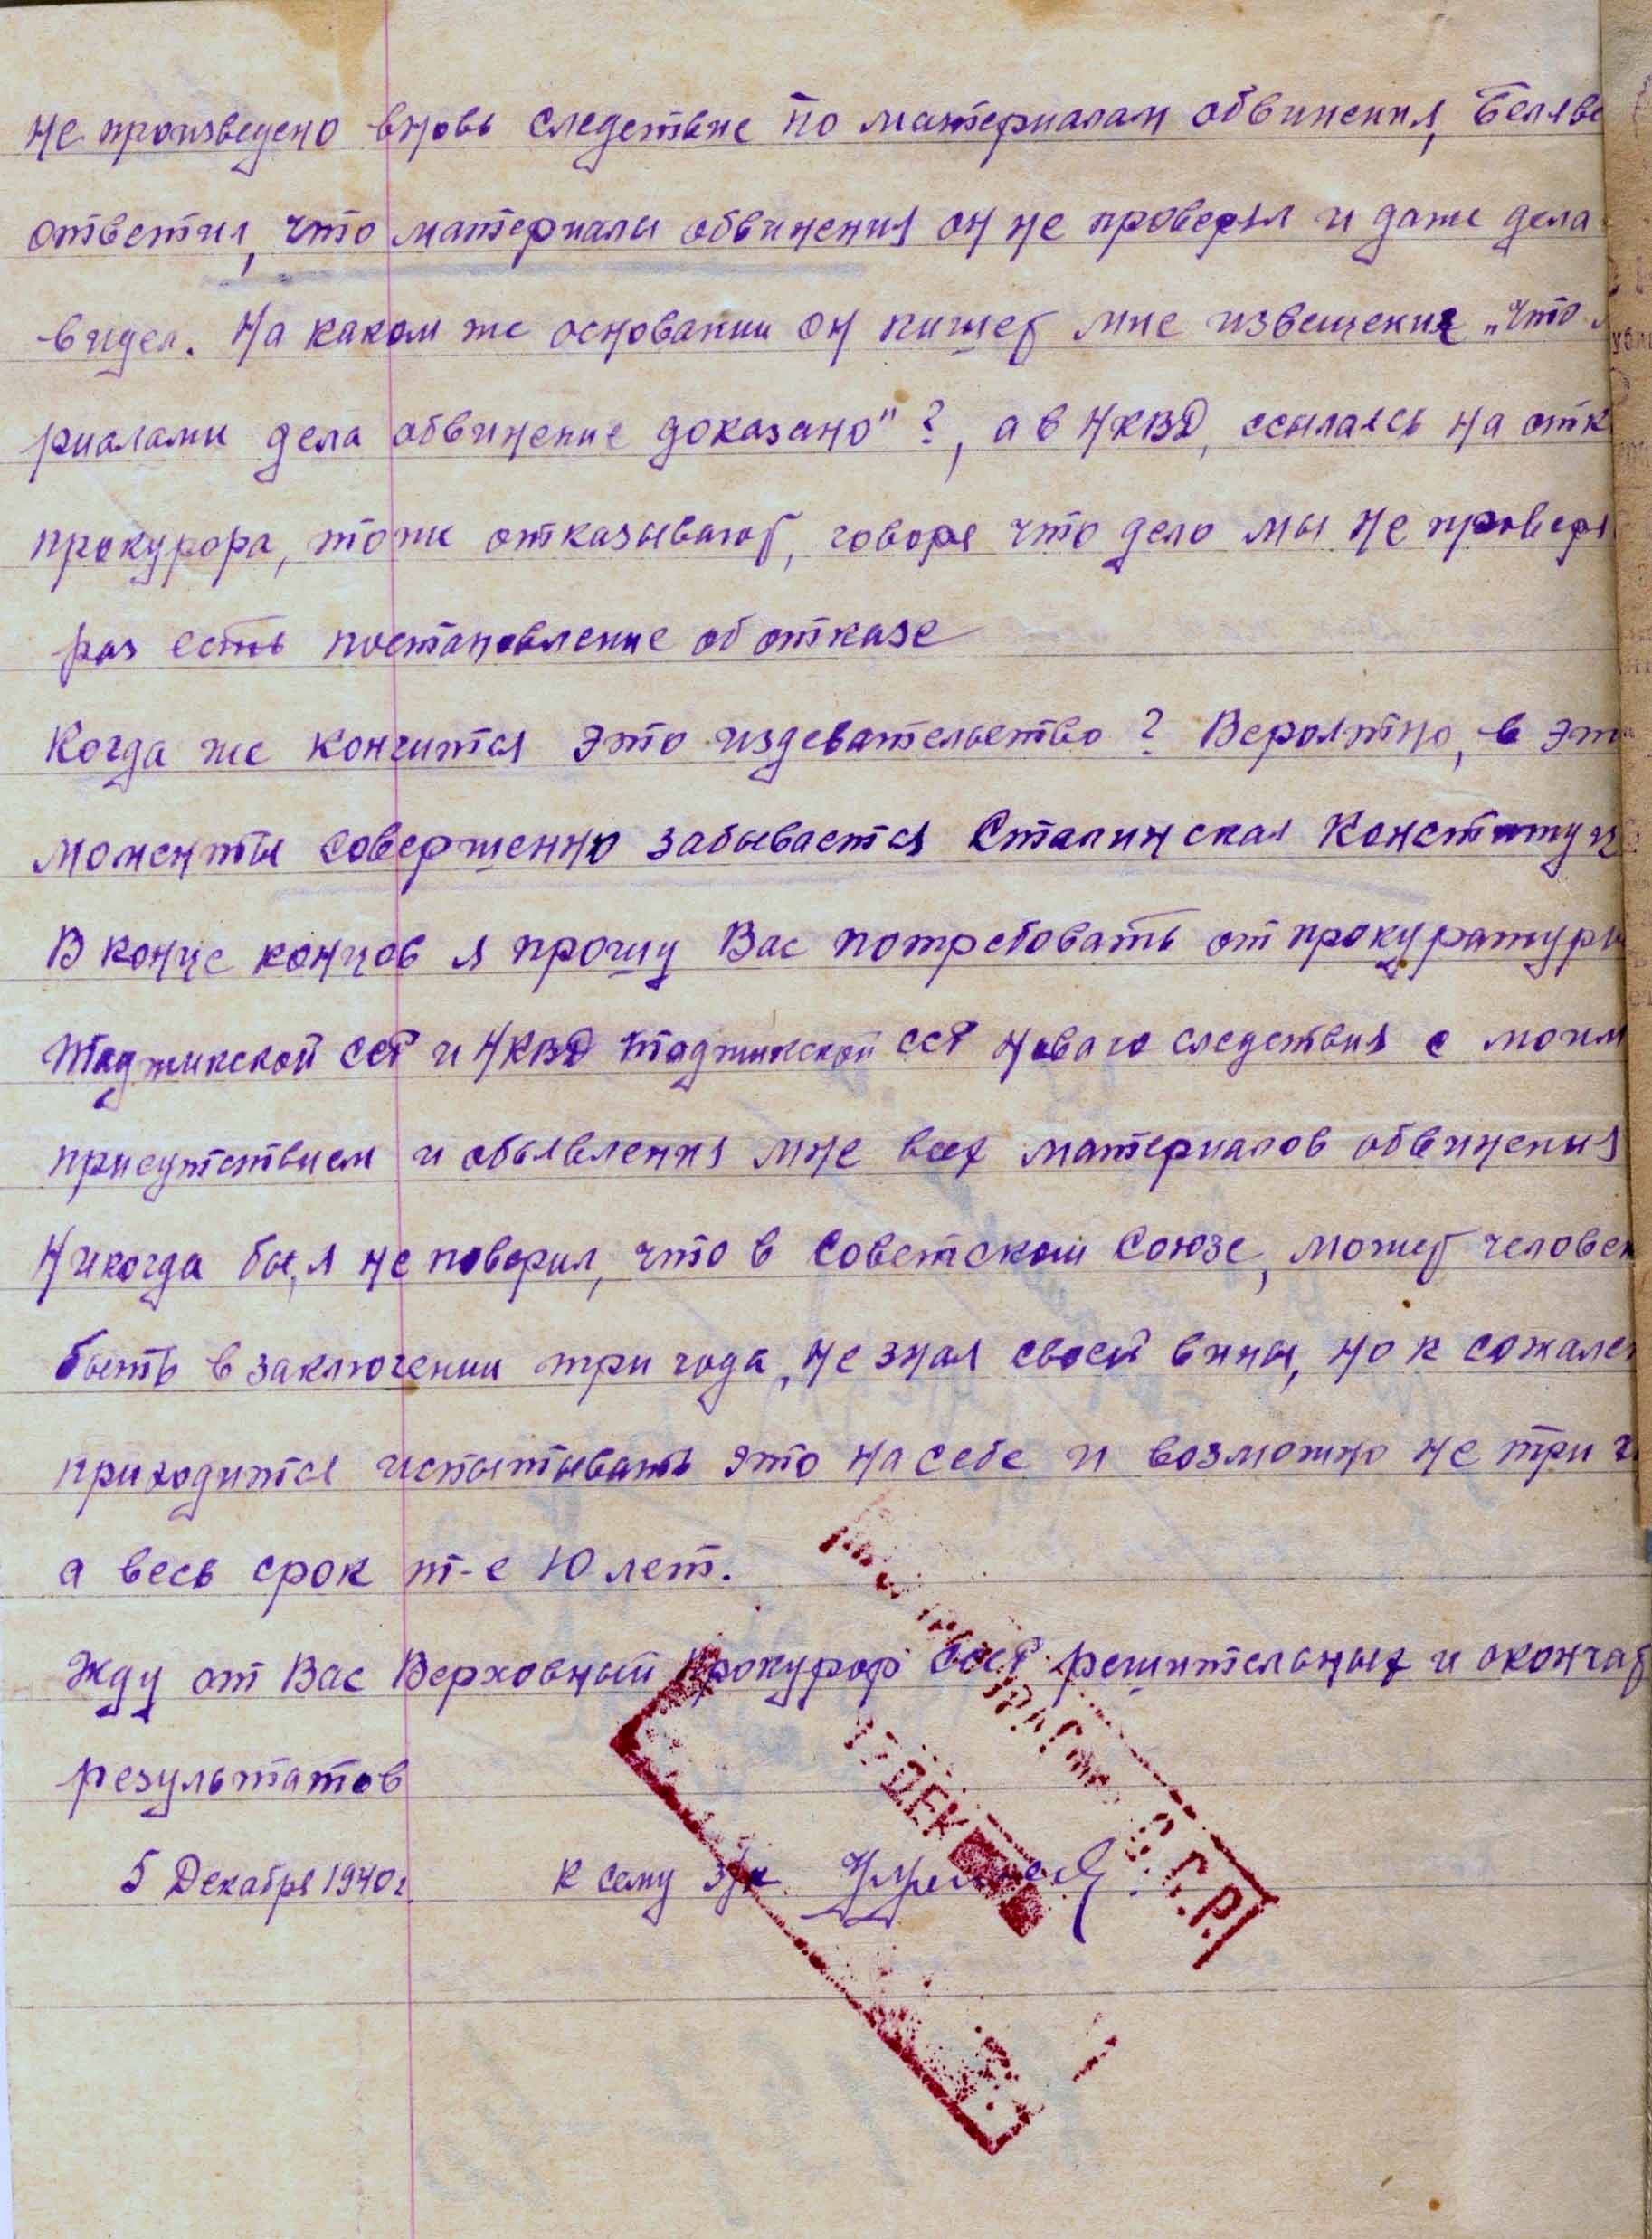 не произведено вновь следствие по материалам обвинения, Беляве
ответил, что материалы обвинения он не проверял и даже дела
видел. На каком же основании он пишет мне извещение „что
риалами дела обвинение доказано"?, а в НКВД, ссылаясь на отк
прокурора, тоже отказывают, говоря что дело мы не проверя
раз есть постановление об отказе
Когда же кончится это издевательство? Вероятно, в эт
моменты совершенно забывается Сталинская Конституци
В конце концов я прошу Вас потребовать от прокуратуры
Таджикской ССР и НКВД Таджикской ССР нового следствия с моим
присутствием и объявления мне всех материалов обвинения
Никогда бы, я не поверил, что в Советском Союзе, может человек
быть в заключении три года, не зная своей вины, но к сожале
приходится испытывать это на себе и возможно не три г
а весь срок т-е 10 лет.
Жду от Вас Верховный Прокурор СССР решительных и окончат
результатов
5 Декабря 1940 г. к сему з/к
17 ДЕК
С.С.Р.